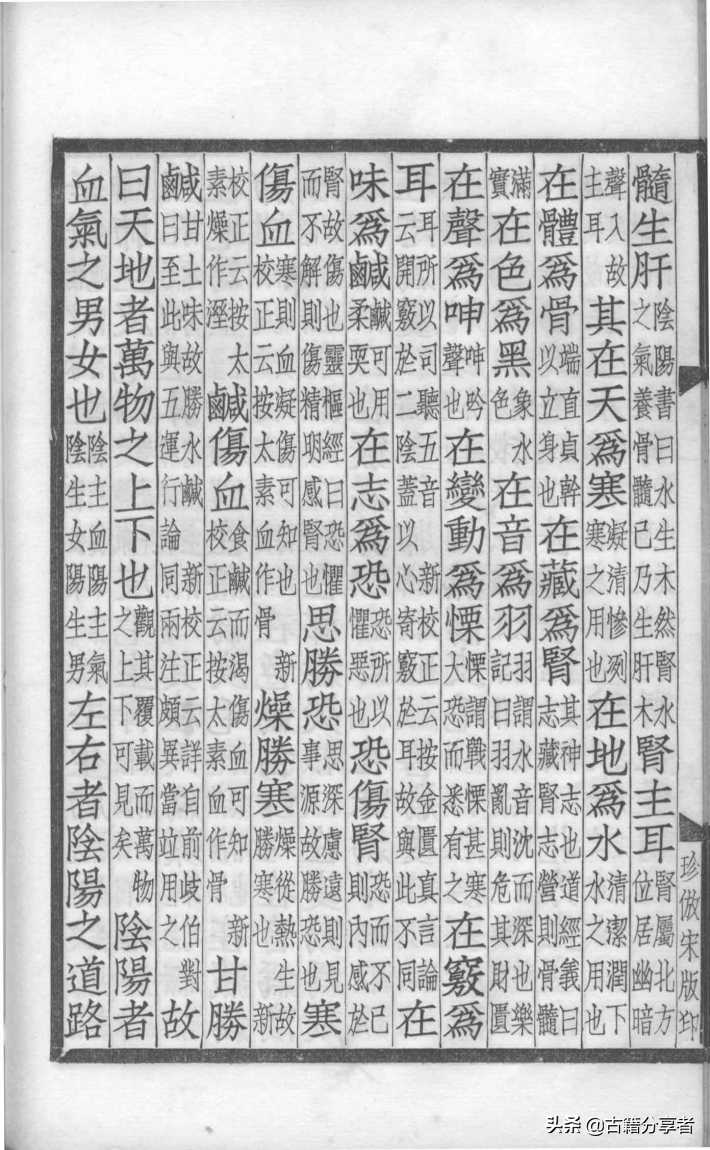 髓生肝陰陽書曰水生木然腎水之氣養骨髓已乃生肝木腎主耳腎屬北方位居幽暗
聲入故主耳其在天爲寒凝清慘冽寒之用也在地爲水清潔潤下水之用也
在體爲骨端直貞幹以立身也在藏爲腎其神志也道經義曰志藏腎志營則骨髓
滿實在色爲黑象水色在音爲羽羽謂水音沈而深也樂記曰羽亂則危其財匱
在聲爲呻呻吟聲也在變動爲慄慄謂戰慄甚寒大恐而悉有之在竅爲
耳耳所以司聽五音 新校正云按金匱真言論云開竅於二陰蓋以心寄竅於耳故與此不同在
味爲鹹鹹可用柔耎也在志爲恐恐所以懼惡也恐傷腎恐而不已則內感於
腎故傷也靈樞經曰恐懼而不解則傷精明感腎也思勝恐思深慮遠則見事源故勝恐也寒
傷血寒則血凝傷可知也 新校正云按太素血作骨燥勝寒燥從熱生故勝寒也 新
校正云按太素燥作溼鹹傷血食鹹而渴傷血可知 新校正云按太素血作骨甘勝
鹹甘土味故勝水鹹 新校正云詳自前歧伯對曰至此與五運行論同兩注頗異當竝用之故
曰天地者萬物之上下也觀其覆載而萬物之上下可見矣陰陽者
血氣之男女也陰主血陽主氣陰生女陽生男左右者陰陽之道路
珍倣宋版印
头条 @古籍分享者